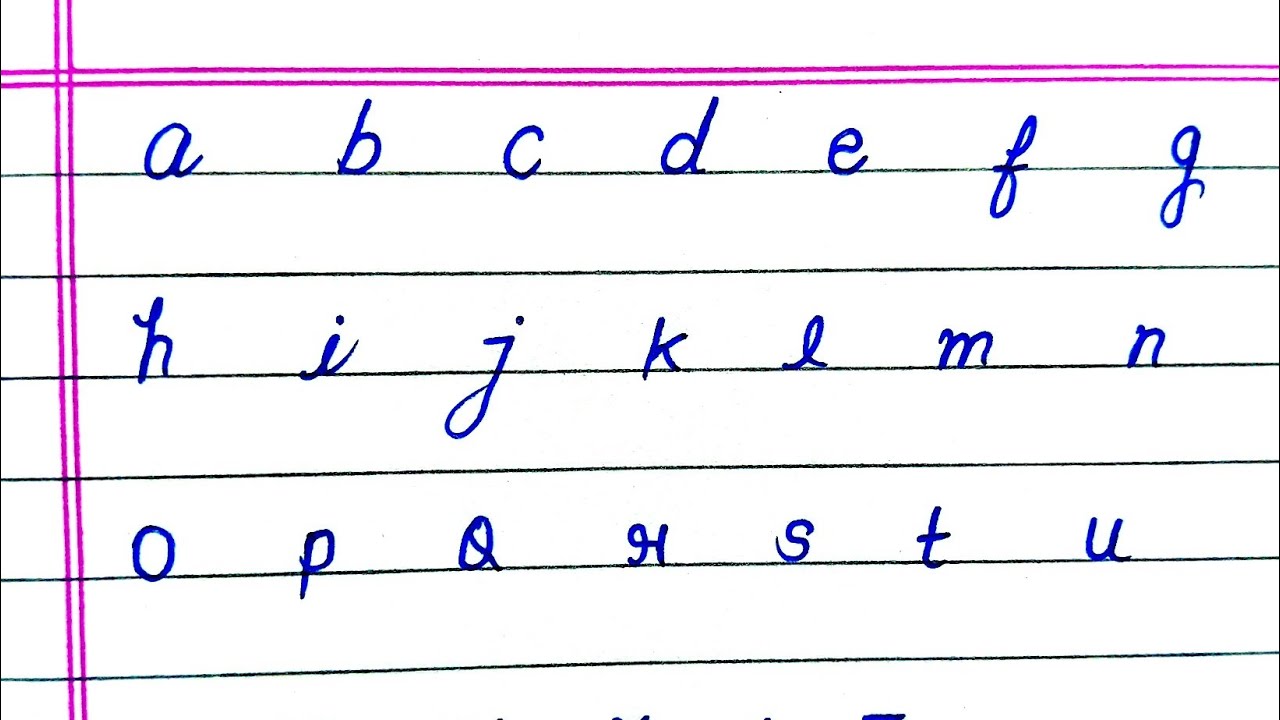 a b c d e f g
h i j k l m n
o p Q r s t u